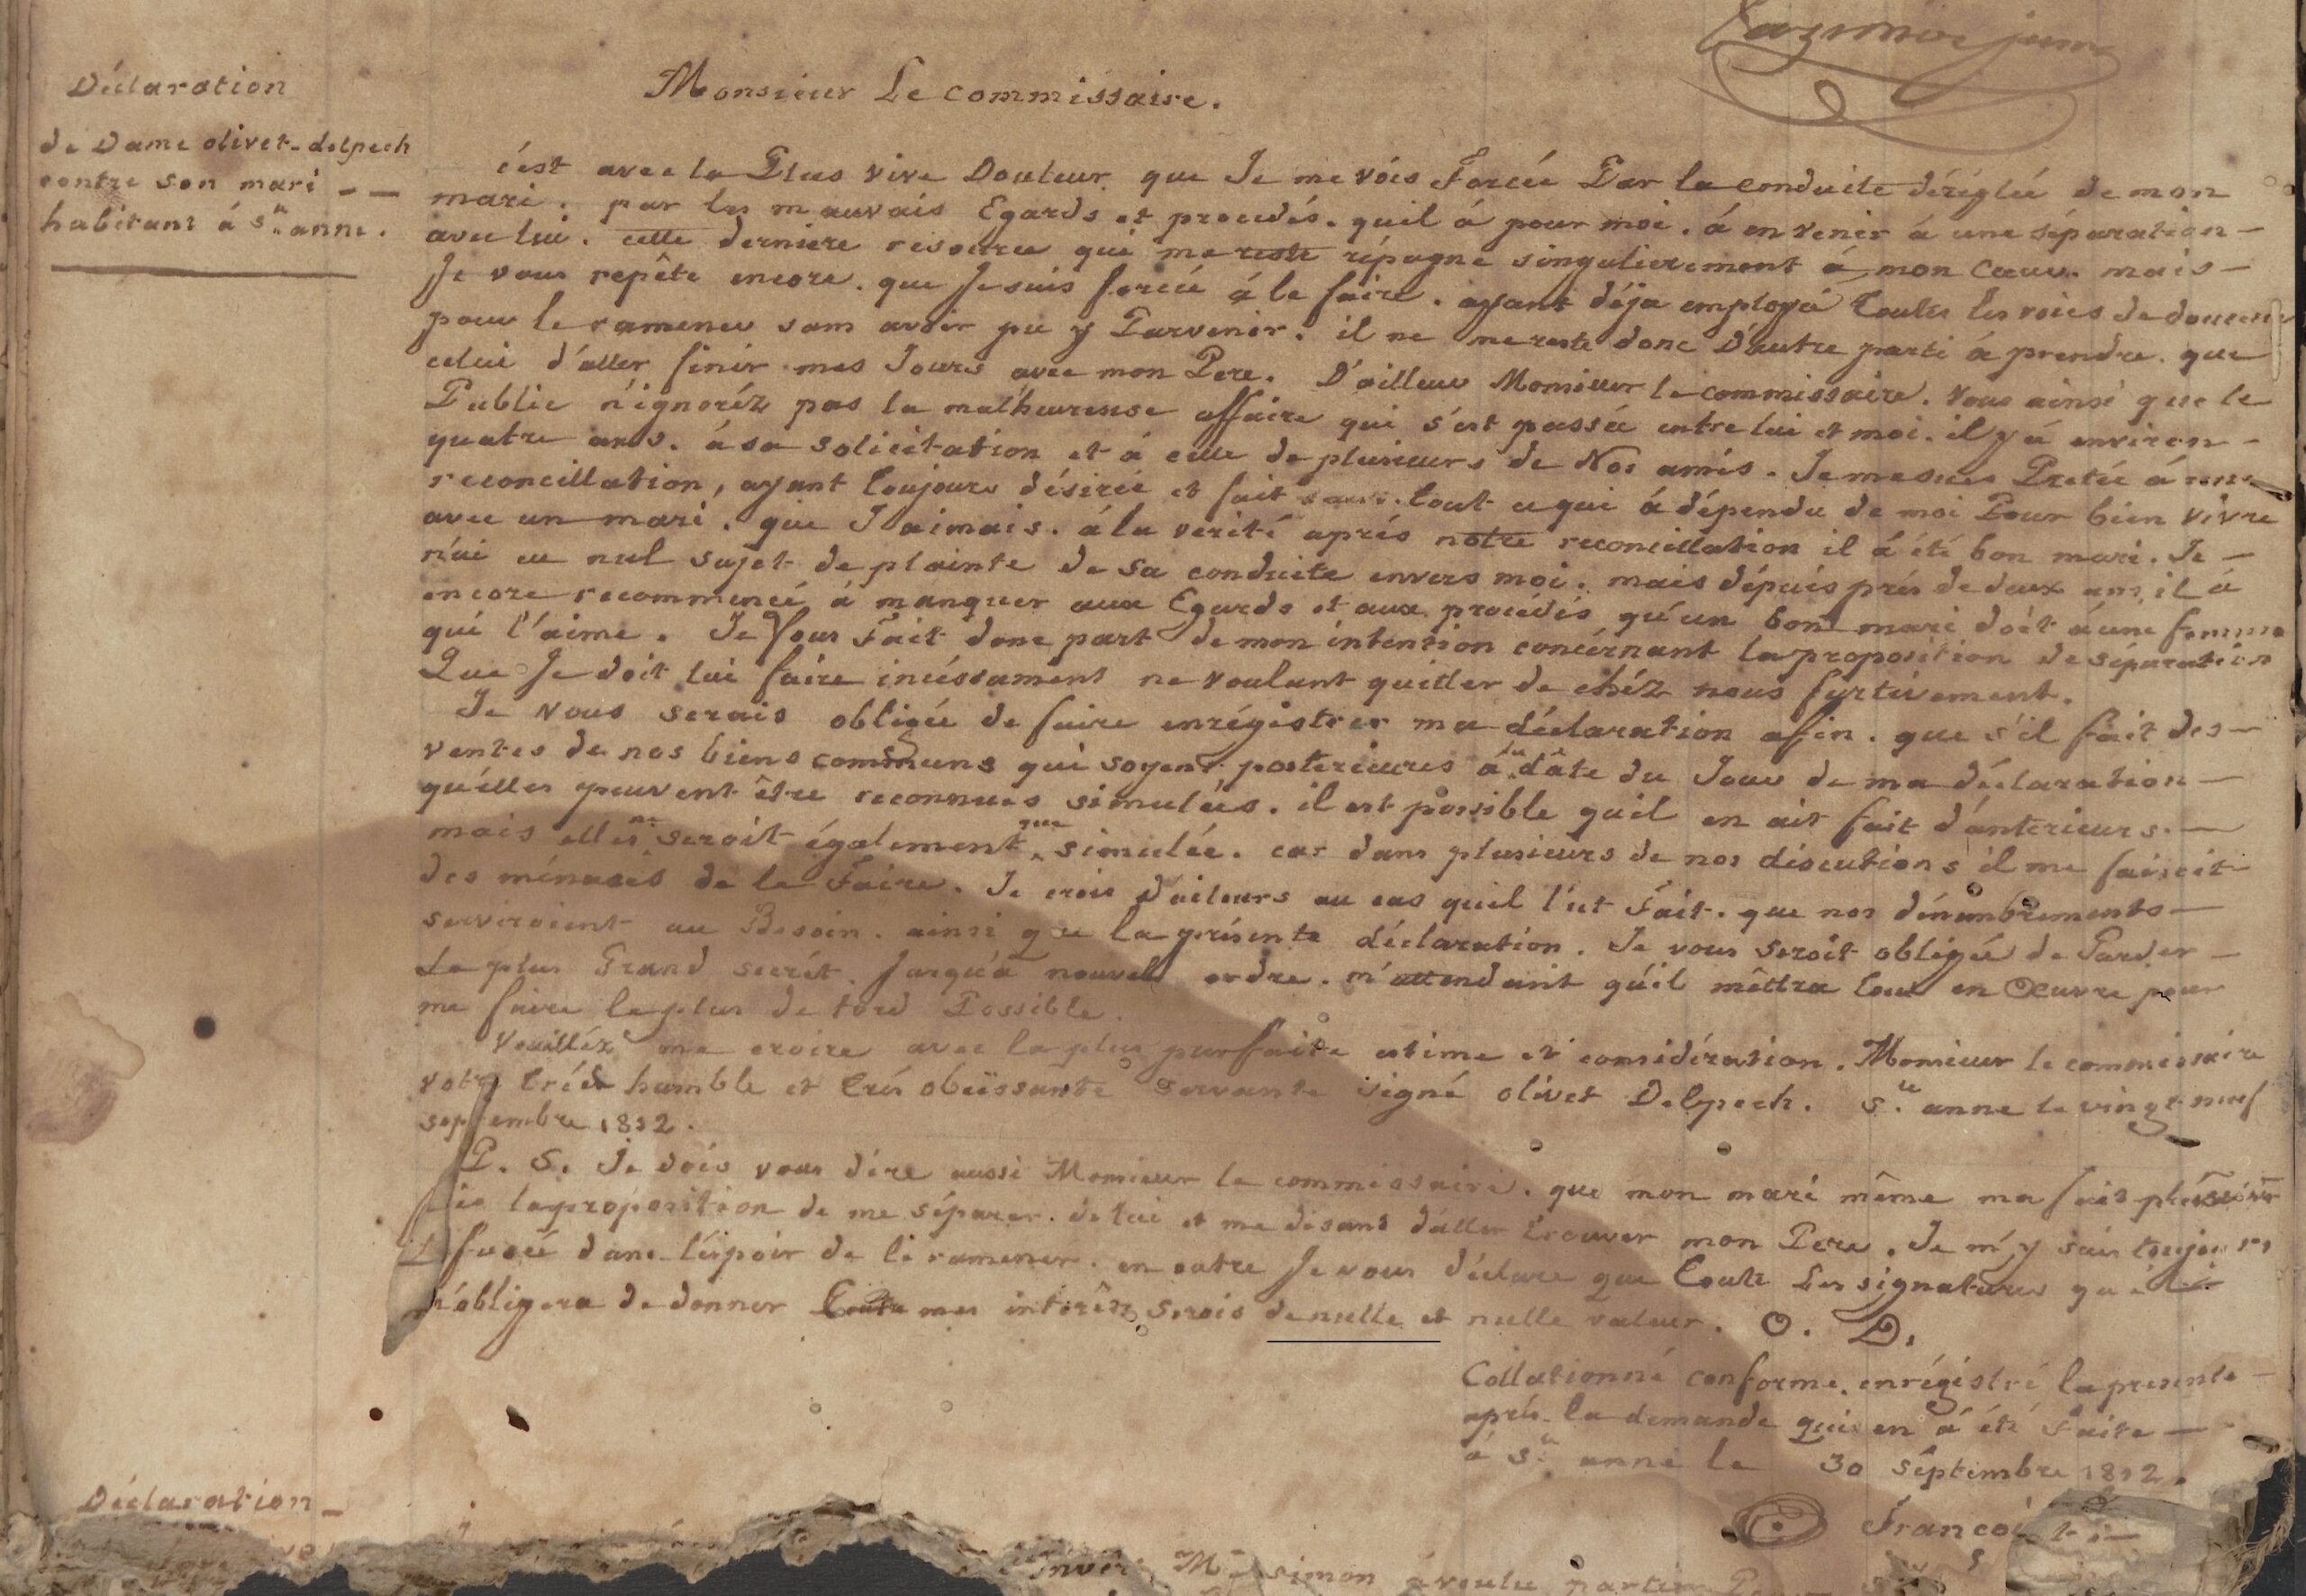 Déclaration
de Dame olivet-delpech
contre son mari --
habitant á Ste anne.
Monsieur Le commissaire.
c'est avec la Plus vive Douleur que Je me vóis Forcée Par la conduite déréglée de mon
mari. par les mauvais Egards et procédés. quil á pour moi. á en venir á une séparation-
avec lui. cette derniere resource qui me reste répugne singulierement á mon Cœur. mais-
Je vous repête encore. que Je suis forcée á le faire. ayant déja employé toutes les voies de douceur
pour le ramener sans avoir pu y Parvenir. il ne me reste donc D'autre parti á prendre. que
celui d'aller finir mes Jours avec mon Pere. D'ailleur Monsieur le commissaire. Vous ainsi que le
Public n'ignoréz pas la malheureuse affaire qui s'est passée entre lui et moi. il y á environ-
quatre ans. á sa solicitation et á celle de plusieurs de Nos amis. Je me suis Pretée á une
reconcillation, ayant toujours désirée et fait tout ce qui á dépendu de moi Pour bien vivre
avec un mari. que J'aimais. á la verité aprés notre reconcillation il á été bon mari. Je-
n'ai eu nul sujet de plainte de sa conduite envers moi. mais dépuis prés de deux ans, il á
encore recommencé á manquer aux Egards et aux procédés qu'un bon mari doit á une femme
qui l'aime. Je Vous Fait donc part de mon intention concérnant la proposition de séparation
Que Je doit lui faire incéssament ne voulant quitter de chéz nous furtivement.
Je vous serais obligée de faire enrégistrer ma déclaration afin. que s'il fait des-
ventes de nos biens communs qui soyent posterieures á la dâte du Jour de ma déclaration-
qu'elles peuvent être reconnues simulées. il est possible quil en ait fait d'anterieurs.-
mais elles ne seroit également que simulée. car dans plusieurs de nos discutions il me faisoit
des ménaces de le Faire. Je crois d'ailleurs au cas quil l'eut Fait. que nos dénombrements-
serviroient au Besoin. ainsi que la présente déclaration. Je vous seroit obligée de Garder-
Le plus Grand secrét. Jusqu'á nouvel ordre. m'attendant qu'il mêttra tout en Œuvre pour
me faire le plus de tord Possible.
Veuilléz me croire avec la plus parfaite estime et considération. Monsieur le commissaire
votre trés humble et trés obeïssante servante signé olivet Delpech. Ste anne le vingt neuf
septembre 1812.
P. S. Je dois vous dire aussi Monsieur le commissaire. que mon mari même ma fait plusieurs
la proposition de me séparer. de lui et me disant d'aller trouver mon Pere. Je m'y suis toujours
refusée dans l'éspoir de le ramener. en outre Je vous déclare que toute Les signatures qu'il
m'obligera de donner Contre mes intérêts serois de nulle et nulle valeur. O. D.
Collationné conforme, enrégistré la presente-
aprés la demande qui en á été Faite-
á Ste anne le 30 séptembre 1812.
Déclaration-
Mr simon á voulu